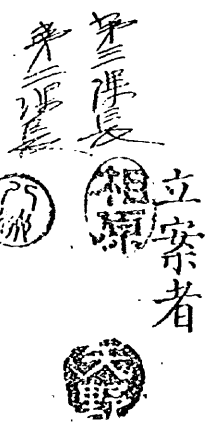 立案者
第三課長
相原
第二課長
大野